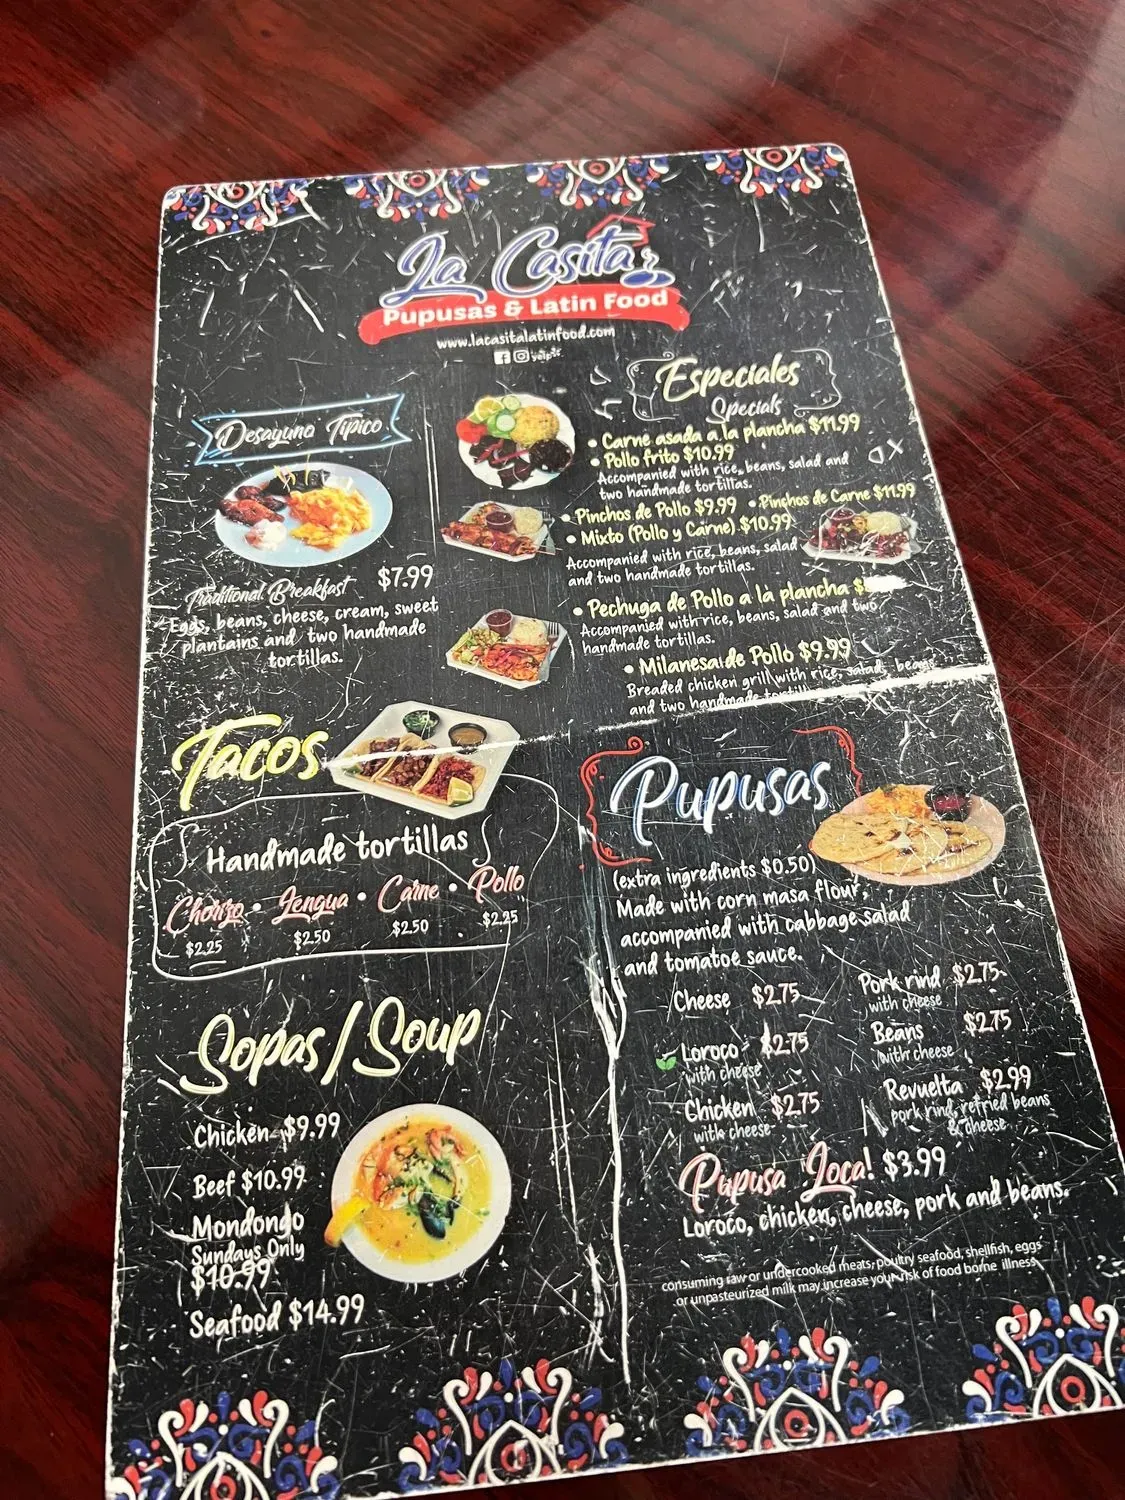 La Casita
Pupusas & Latin Food
www.lacasitalatinfood.com
yelp
Desayuno Típico
Traditional Breakfast $7.99
Eggs, beans, cheese, cream, sweet
plantains and two handmade
tortillas.
Especiales
Specials
• Carne asada a la plancha $11.99
• Pollo frito $10.99
Accompanied with rice, beans, salad and
two handmade tortillas.
• Pinchos de Pollo $9.99 • Pinchos de Carne $11.99
• Mixto (Pollo y Carne) $10.99
Accompanied with rice, beans, salad
and two handmade tortillas.
• Pechuga de Pollo a la plancha $
Accompanied with rice, beans, salad and two
handmade tortillas.
• Milanesa de Pollo $9.99
Breaded chicken grill with rice, salad, beans
and two handmade
Tacos
Handmade tortillas
Chorizo • Lengua • Carne • Pollo
$2.25 $2.50 $2.50 $2.25
Sopas/Soup
Chicken $9.99
Beef $10.99
Mondongo
Sundays Only
$10.99
Seafood $14.99
Pupusas
(extra ingredients $0.50)
Made with corn masa flour,
accompanied with cabbage salad
and tomatoe sauce.
Cheese $2.75
Loroco $2.75
with cheese
Chicken $2.75
with cheese
Pork rind $2.75
with cheese
Beans $2.75
with cheese
Revuelta $2.99
pork rind, refried beans
& cheese
Pupusa Loca! $3.99
Loroco, chicken, cheese, pork and beans.
consuming raw or undercooked meats, poultry seafood, shellfish, eggs
or unpasteurized milk may increase your risk of food borne illness